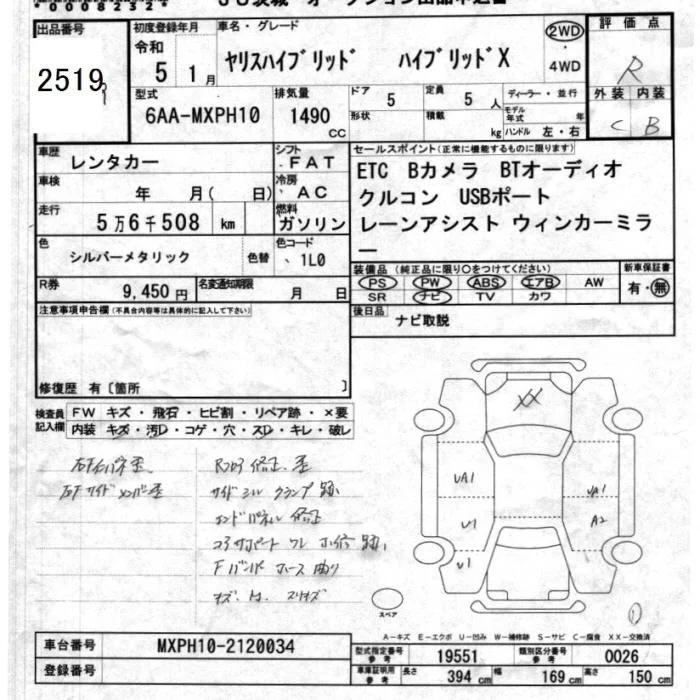 *00082324
出品番号 初度登録年月 車名・グレード 2WD 評価点
2519 令和 5 1月 ヤリスハイブリッド ハイブリッドX 4WD R
型式 排気量 ドア 5 定員 5人 ディーラー・並行 外装 内装
6AA-MXPH10 1490 CC 形状 積載 kg モデル年式 年 ハンドル 左・右 C B
車歴 レンタカー シフト FAT セールスポイント(正常に機能するものに限ります)
車検 年 月( 日) 冷房 AC ETC Bカメラ BTオーディオ
走行 5万6千508 km 燃料 ガソリン クルコン USBポート
レーンアシスト ウィンカーミラ
ー
色 シルバーメタリック 色替 色コード 1L0
装備品(純正品に限り○をつけてください) 新車保証書
PS PW ABS エアB AW 有・無
SR ナビ TV カワ
R券 9,450円 名変通知期限 月 日
後日品 ナビ取説
注意事項申告欄(不具合内容等は具体的に記入して下さい)
修復歴 有〔箇所 〕
検査員記入欄 FW キズ・飛石・ヒビ割・リペア跡・×要
内装 キズ・汚れ・コゲ・穴・スレ・キレ・破レ
XX
UA1
U1
U1
UA1
A2
スペア
A-キズ E-エクボ U-凹み W-補修跡 S-サビ C-腐食 XX-交換済
車台番号 MXPH10-2120034
型式指定番号 参考 19551 類別区分番号 参考 0026
登録番号
車庫証明用 参考 長さ 394 cm 幅 169 cm 高さ 150 cm